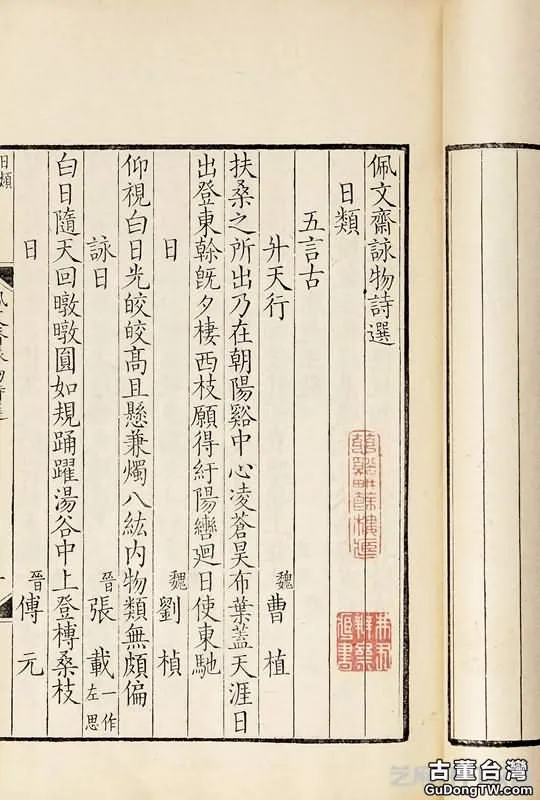 佩文齋詠物詩選
日類
五言古
升天行
魏曹植
扶桑之所出乃在朝陽谿中心凌蒼昊布葉蓋天涯日
出登東榦旣夕棲西枝願得紆陽轡迴日使東馳
日
魏劉楨
仰視白日光皎皎髙且懸兼燭八紘内物類無頗偏
詠日
晉張載一作左思
白日隨天回暾暾圓如規踊躍湯谷中上登榑桑枝
日
晉傅元
日類
古董台灣
GuDongTW.com